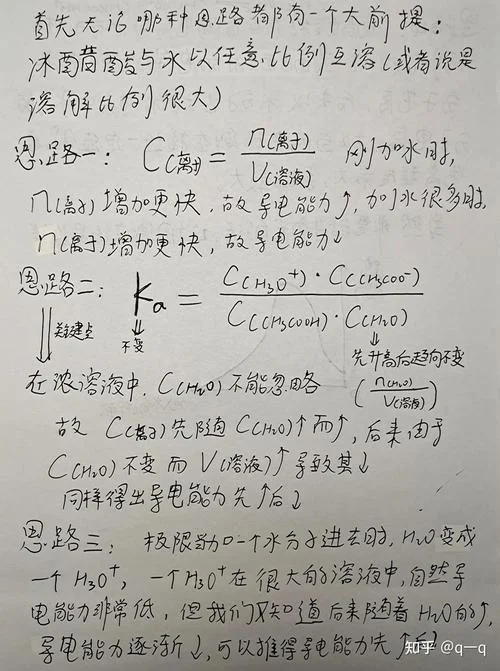 首先无论哪种思路都有一个大前提:
冰醋酸与水以任意比例互溶(或者说是
溶解比例很大)
思路一: C(离子) = n(离子) / V(溶液) 刚加水时,
n(离子)增加更快,故导电能力↑,加水很多时,
n(离子)增加更快,故导电能力↓
思路二: Ka = C(H3O+)·C(CH3COO-) / C(CH3COOH)·C(H2O)
关键点
不变
先升高后趋向不变
(n(H2O) / V(溶液))
在浓溶液中,C(H2O)不能忽略
故C(离子)先随C(H2O)↑而↑,后来由于
C(H2O)不变而V(溶液)↑导致其↓
同样得出导电能力先↑后↓
思路三: 极限法加一个水分子进去时,H2O变成
一个H3O+,一个H3O+在很大的溶液中,自然导
电能力非常低,但我们又知道后来随着H2O的↑,
导电能力逐渐↓,可以推得导电能力先↑后↓
知乎 @q一q